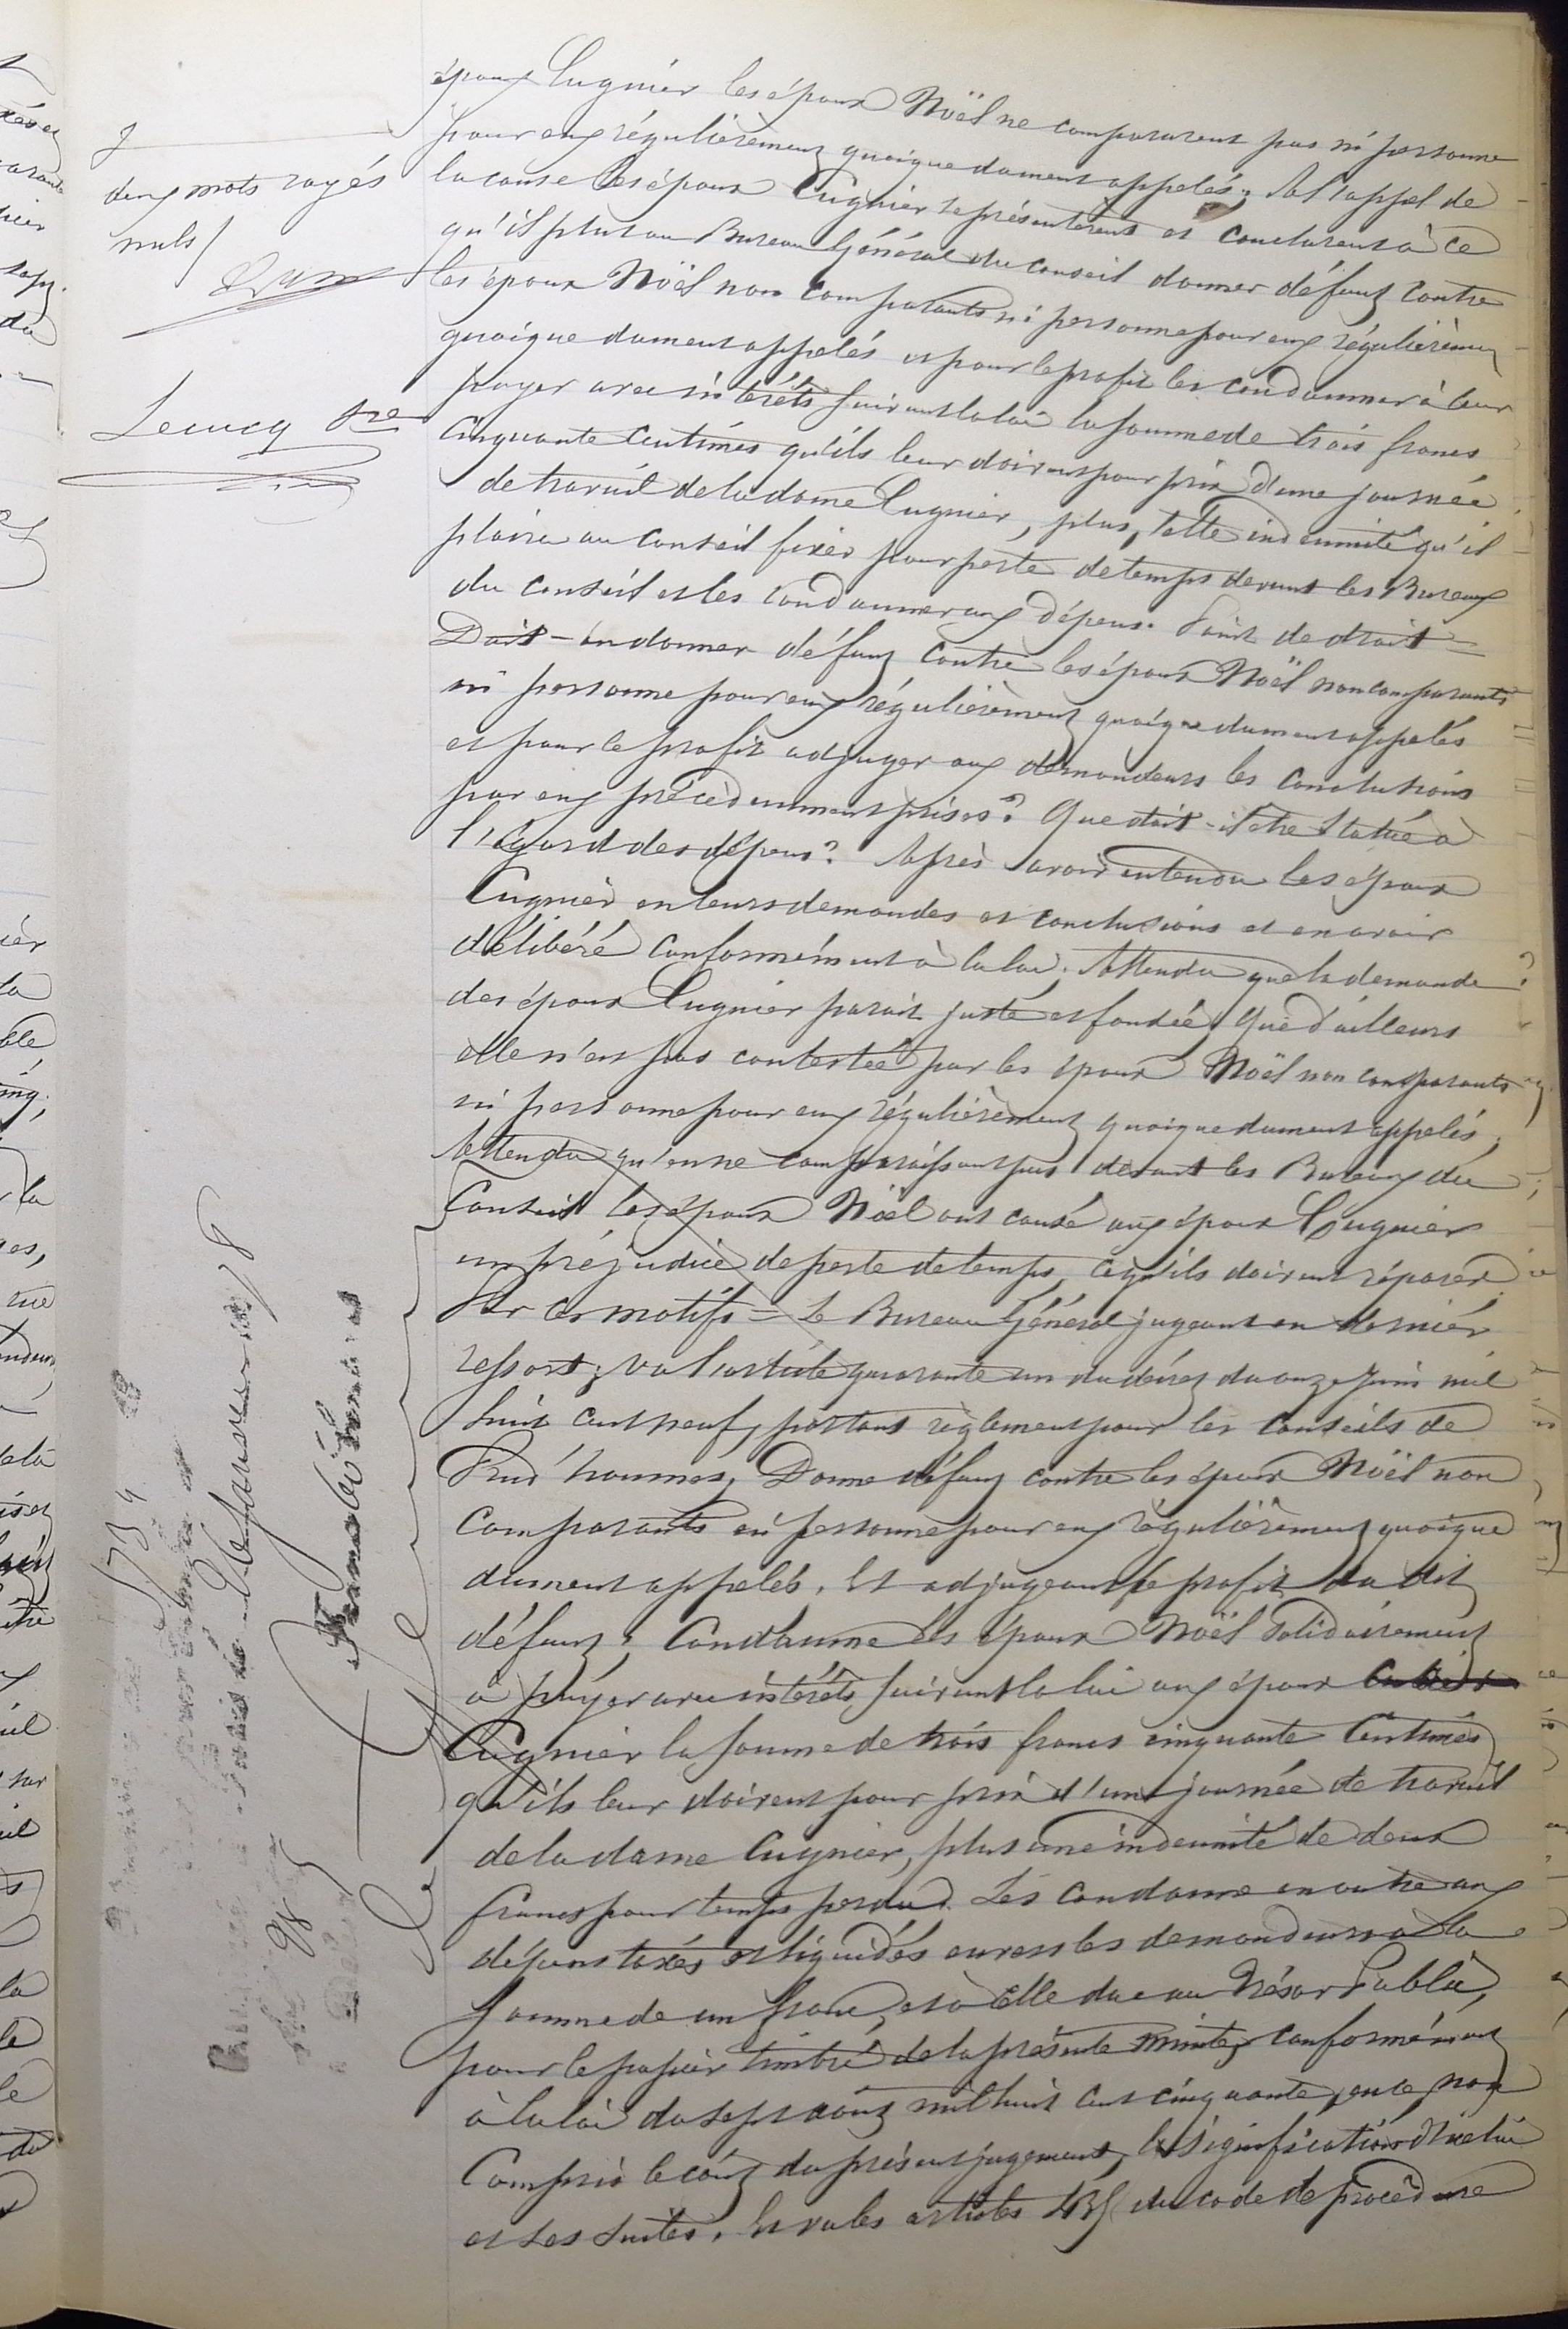 deux mots rayés
nuls
Lecucq Sre
époux Cugnier les époux Noël ne comparurent pas ni personne
pour eux régulièrement quoique dument appelés; A l'appel de
la cause les époux Cugnier se présentèrent et conclurent à ce
qu'il plut au Bureau Général du conseil donner défaut contre
les époux Noël non comparants ni personne pour eux régulièrement
quoique dument appelés et pour le profit les condamner à leur
payer avec intérêts suivant la loi la somme de trois francs
cinquante centimes qu'ils leur doivent pour prix d'une journée
de travail de la dame Cugnier, plus, telle indemnité qu'il
plaira au conseil fixer pour perte de temps devant les Bureaux
du conseil et les condamner aux dépens. Point de droit =
Doit-on donner défaut contre les époux Noël non comparants
ni personne pour eux régulièrement quoique dument appelés
et pour le profit adjuger aux demandeurs les conclusions
par eux précédemment prises? Que doit-il être statué à
l'égard des dépens? Après avoir entendu les époux
Cugnier en leurs demandes et conclusions et en avoir
délibéré conformément à la loi; Attendu que la demande
des époux Cugnier parait juste et fondée; Que d'ailleurs
elle n'est pas contestée par les époux Noël non comparants
ni personne pour eux régulièrement quoique dument appelés;
Attendu qu'en ne comparaissant pas devant les Bureaux du
Conseil les époux Noël ont causé aux époux Cugnier
un préjudice de perte de temps, ce qu'ils doivent réparer;
Par ces motifs = Le Bureau Général jugeant en dernier
ressort; vu l'article quarante un du décret du onze juin mil
huit cent neuf, portant règlement pour les conseils de
Prud'hommes; Donne défaut contre les époux Noël non
comparants ni personne pour eux régulièrement quoique
dument appelés. Et adjugeant le profit du dit
défaut; Condamne les époux Noël solidairement
à payer avec intérêts suivant la loi aux époux
Cugnier la somme de trois francs cinquante centimes
qu'ils leur doivent pour prix d'une journée de travail
de la dame Cugnier, plus une indemnité de deux
francs pour temps perdu. Les condamne en outre aux
dépens taxés et liquidés envers les demandeurs à la
somme de un franc, et à celle due au Trésor Public,
pour le papier timbré de la présente minute, conformément
à la loi du sept août mil huit cent cinquante, en ce non
compris le coût du présent jugement, la signification d'icelui
et ses suites. Et vu les articles 435 du code de procédure